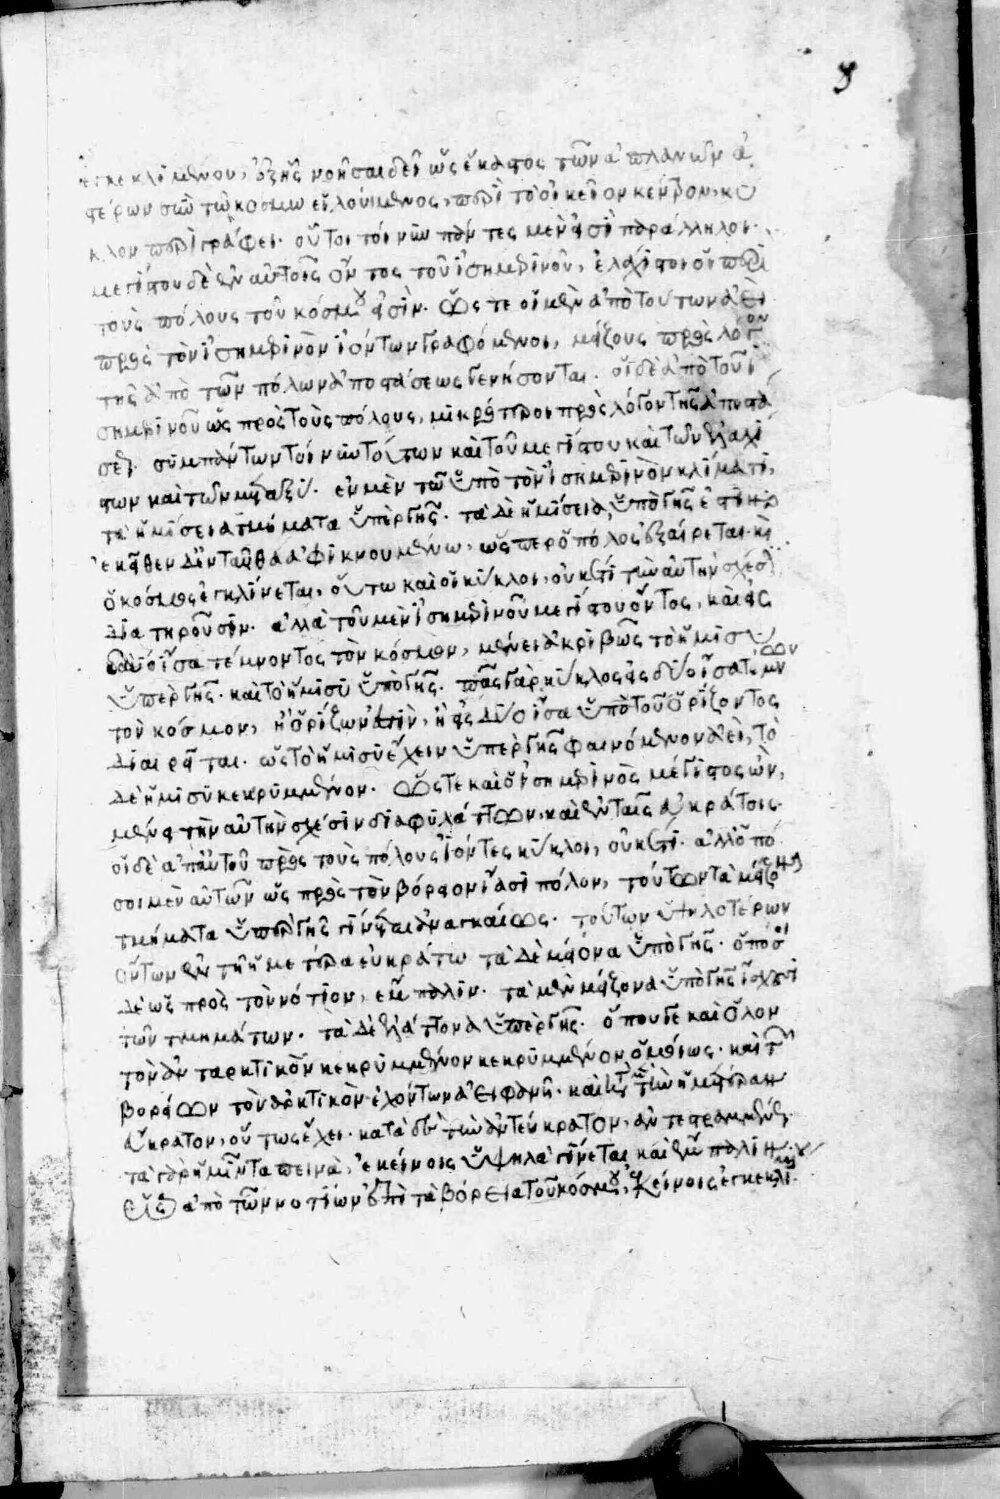 γ
ἐγκεκλιμένου, ἑξῆς νοῆσαι δεῖ ὡς ἕκαστος τῶν ἀπλανῶν ἀ
στέρων σὺν τῷ κόσμῳ εἱλούμενος, περὶ τὸ οἰκεῖον κέντρον, κύ
κλον περιγράφει. οὗτοι τοίνυν πάντες μέν εἰσι παράλληλοι.
μεγίστου δὲ ἐν αὐτοῖς ὄντος τοῦ ἰσημερινοῦ, ἐλάχιστοι οἱ περὶ
τοὺς πόλους τοῦ κόσμου εἰσίν. ὥστε οἱ μὲν ἀπὸ τούτων ἀεὶ
πρὸς τὸν ἰσημερινὸν ἰόντων γραφόμενοι, μείζους πρὸς λόγον
τῆς ἀπὸ τῶν πόλων ἀποστάσεως γενήσονται. οἱ δὲ ἀπὸ τοῦ ἰ
σημερινοῦ ὡς πρὸς τοὺς πόλους, μικρότεροι πρὸς λόγον τῆς ἀποστά
σε. συμπάντων τοίνυν τούτων καὶ τοῦ μεγίστου καὶ τῶν ἐλαχί
στων καὶ τῶν μεταξύ. ἐν μὲν τῷ ὑπὸ τὸν ἰσημερινὸν κλίματι,
τὰ ἡμίσεια τμήματα ὑπὲρ γῆς. τὰ δὲ ἡμίσεια, ὑπὸ γῆς ἐστιν.
ἐκεῖθεν δὲ ἐνταῦθα ἀφικνουμένῳ, ὥσπερ ὁ πόλος ἐξαίρεται κὶ
ὁ κόσμος ἐγκλίνεται, οὕτω καὶ οἱ κύκλοι, οὐκέτι τὴν αὐτὴν σχέσιν
διατηροῦσιν. ἀλλὰ τοῦ μὲν ἰσημερινοῦ μεγίστου ὄντος, καὶ εἰς
δύο ἴσα τέμνοντος τὸν κόσμον, μένει ἀκριβῶς τὸ ἥμισυ
ὑπὲρ γῆς. καὶ τὸ ἥμισυ ὑπὸ γῆς. πᾶς γὰρ κύκλος εἰς δύο ἴσα τέμνων
τὸν κόσμον, ἢ ὁρίζων ἐστὶν, ἢ εἰς δύο ἴσα ὑπὸ τοῦ ὁρίζοντος
διαιρεῖται. ὡς τὸ ἥμισυ ἔχειν ὑπὲρ γῆς φαινόμενον ἀεὶ, τὸ
δὲ ἥμισυ κεκρυμμένον. ὥστε καὶ ὁ ἰσημερινὸς μέγιστος ὢν,
μένει τὴν αὐτὴν σχέσιν διαφυλάττων, καὶ ἐν ταῖς εὐκράτοις.
οἱ δὲ ἀπ' αὐτοῦ πρὸς τοὺς πόλους ἰόντες κύκλοι, οὐκέτι. ἀλλ' ὁπό
σοι μὲν αὐτῶν ὡς πρὸς τὸν βόρειον ἴασι πόλον, τούτων τὰ μείζονα
τμήματα ὑπὲρ γῆς γίνεται ἀναγκαίως. τούτων ὑψηλοτέρων
ὄντων ἐν τῇ ἡμετέρᾳ εὐκράτῳ τὰ δὲ μείονα ὑπὸ γῆς. ὁπόσοι
δὲ ὡς πρὸς τὸν νότιον, ἔμπαλιν. τὰ μὲν μείζονα ὑπὸ γῆς ἴσχουσι
τῶν τμημάτων. τὰ δὲ ἐλάττονα ὑπὲρ γῆς. ὅπου γε καὶ ὅλον
τὸν ἀνταρκτικὸν κεκρυμμένον κεκρυμμένον ὁμοίως. καὶ τῶν
βορείων τὸν ἀρκτικὸν ἐχόντων ἀειφανῆ. καὶ κατὰ τὴν ἡμετέραν
εὔκρατον, οὕτως ἔχει. κατὰ δὲ τὴν ἀντεύκρατον, ἀντεστραμμένως.
τὰ γὰρ ἡμῖν ταπεινὰ, ἐκείνοις ὑψηλὰ γίνεται καὶ ἔμπαλιν
ἀπὸ τῶν νοτίων ἐπὶ τὰ βόρεια τοῦ κόσμου, ἐκείνοις ἐγκεκλι